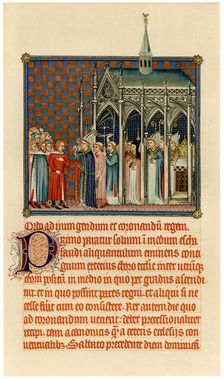 Ordo ad inungendum et coronandum regem.
Primo paratur solium i medium eccl̄e
fundi aliquantulum eminens con
gruum exterius choro eccl̄ie inter utrumq;
chorum in medio in quo per gradus ascendi
tur. et in quo possint pares regni et aliqui si ne
cesse sit cum eo consistere. Rex autem die quo
ad coronandum uenerit: debet processionaliter
recipi. tam a canonicis q̄ a ceteris ecclesiis con
uentualibus. Sabbato precedente diem dominicā